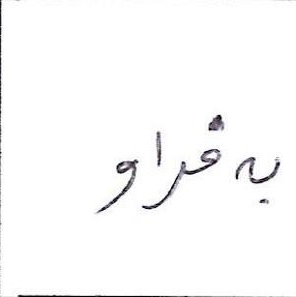 بەفراو